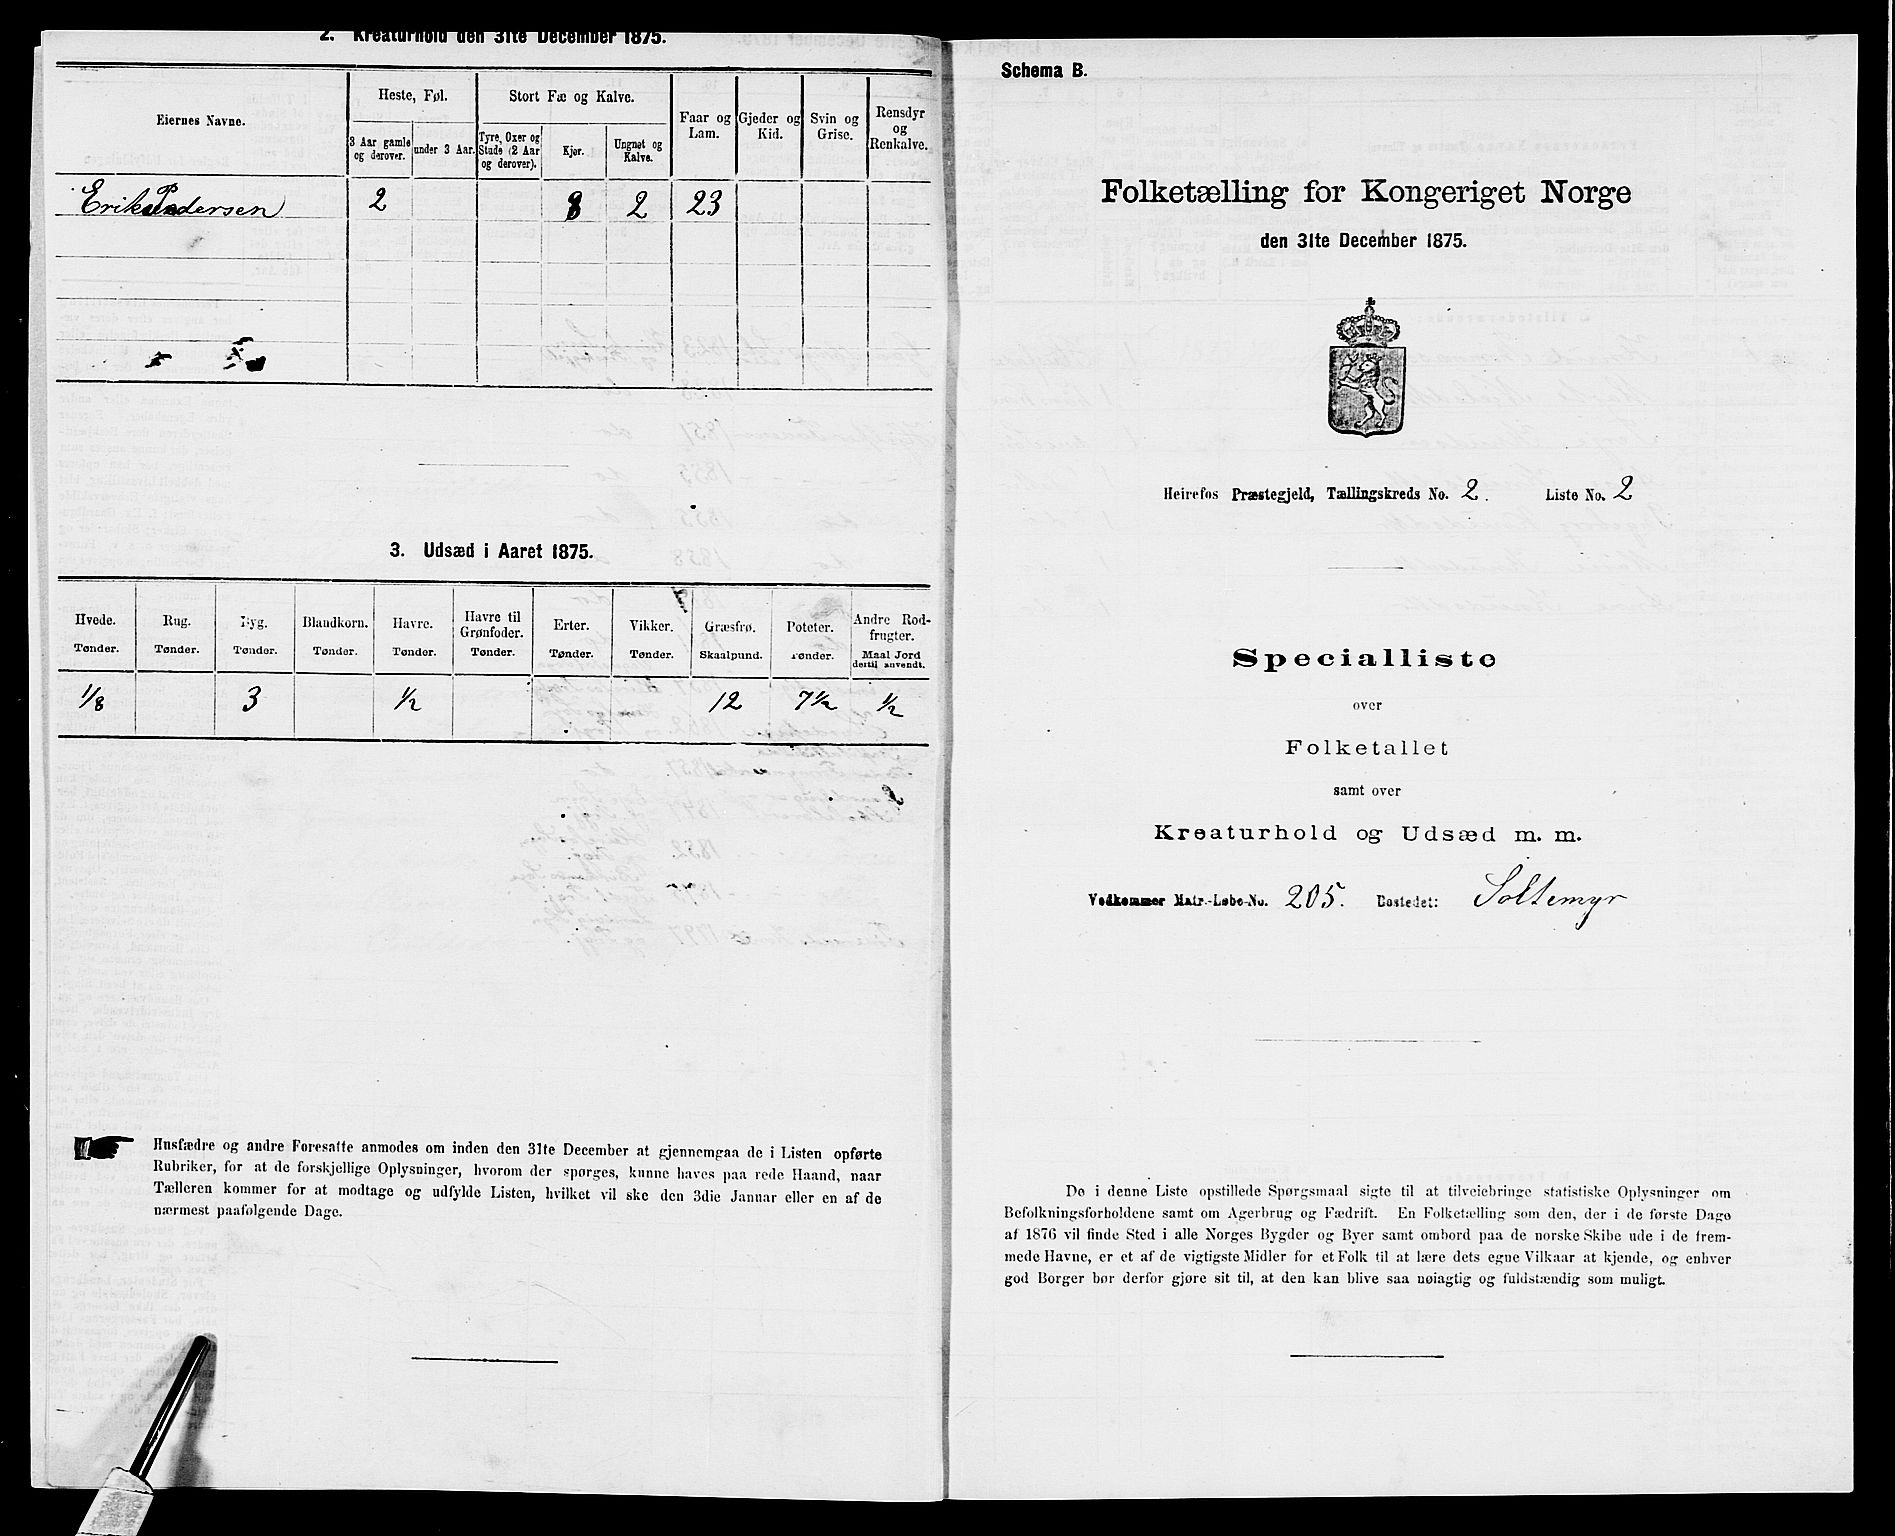 2. Kreaturhold den 31te December 1875.
Eiernes Navne.
Heste, Føl.
Stort Fæ og Kalve.
Faar og Lam.
Gjeder og Kid.
Svin og Grise.
Rensdyr og Renkalve.
3 Aar gamle og derover.
under 3 Aar.
Tyre, Oxer og Stude (2 Aar og derover).
Kjør.
Ungnøt og Kalve.
Erik Pedersen 2 8 2 23
3. Udsæd i Aaret 1875.
Hvede. Rug. Byg. Blandkorn. Havre. Havre til Grønfoder. Erter. Vikker. Græsfrø. Poteter. Andre Rodfrugter.
Tønder. Tønder. Tønder. Tønder. Tønder. Tønder. Tønder. Tønder. Skaalpund. Tønder. Maal Jord dertil anvendt.
1/8 3 1/2 12 7 1/2 1/2
Husfædre og andre Foresatte anmodes om inden den 31te December at gjennemgaa de i Listen opførte
Rubriker, for at de forskjellige Oplysninger, hvorom der spørges, kunne haves paa rede Haand, naar
Tælleren kommer for at modtage og udfylde Listen, hvilket vil ske den 3die Januar eller en af de
nærmest paafølgende Dage.
Schema B.
Folketælling for Kongeriget Norge
den 31te December 1875.
Heirefos Præstegjeld, Tællingskreds No. 2. Liste No. 2
Specialliste
over
Folketallet
samt over
Kreaturhold og Udsæd m. m.
Vedkommer Matr.-Løbe-No. 205. Bostedet: Soltemyr
De i denne Liste opstillede Spørgsmaal sigte til at tilveiebringe statistiske Oplysninger om
Befolkningsforholdene samt om Agerbrug og Fædrift. En Folketælling som den, der i de første Dage
af 1876 vil finde Sted i alle Norges Bygder og Byer samt ombord paa de norske Skibe ude i de frem-
mede Havne, er et af de vigtigste Midler for et Folk til at lære dets egne Vilkaar at kjende, og enhver
god Borger bør derfor gjøre sit til, at den kan blive saa nøiagtig og fuldstændig som muligt.